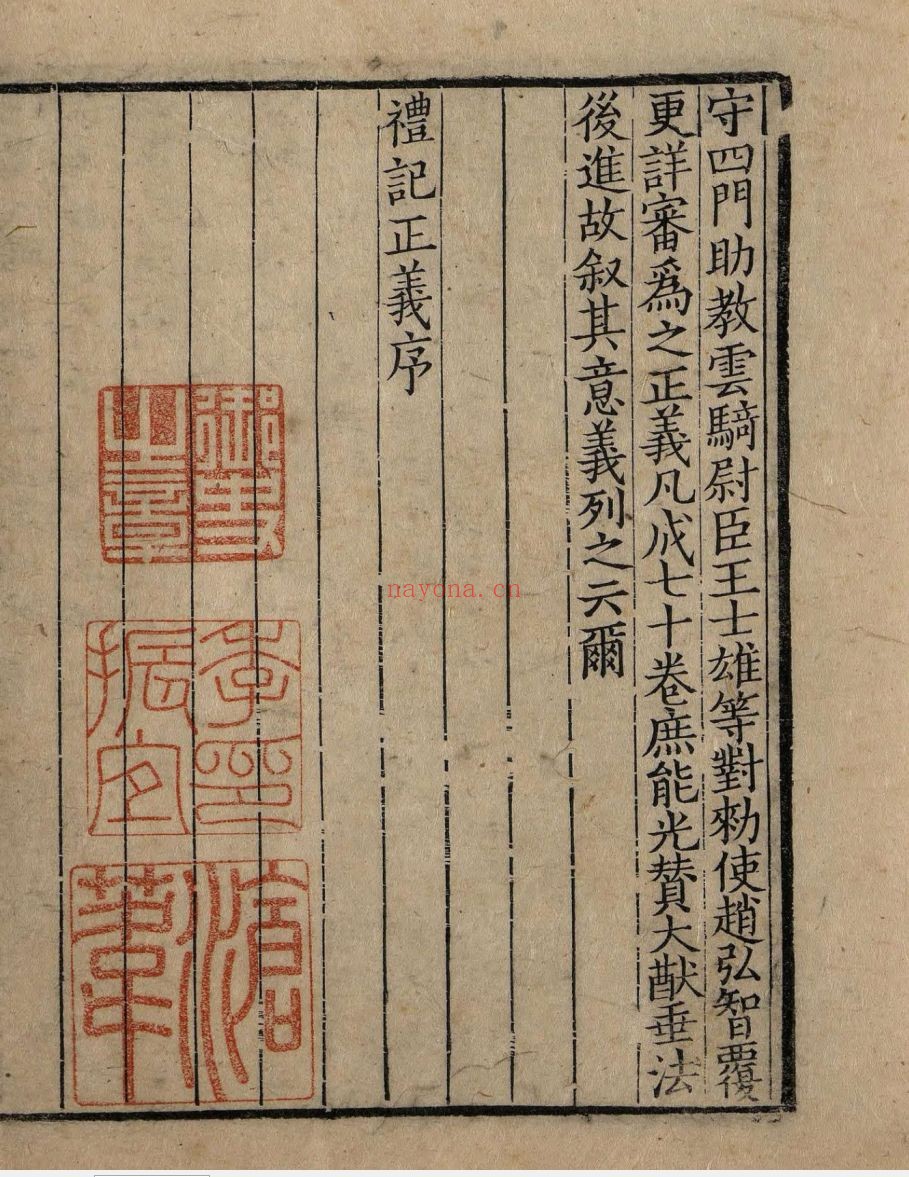 守四門助教雲騎尉臣王士雄等對勑使趙弘智覆
更詳審爲之正義凡成七十卷庶能光賛大猷垂法
後進故叙其意義列之云爾
禮記正義序
御史
之章
季印
振宜
滄
葦
nayona.cn